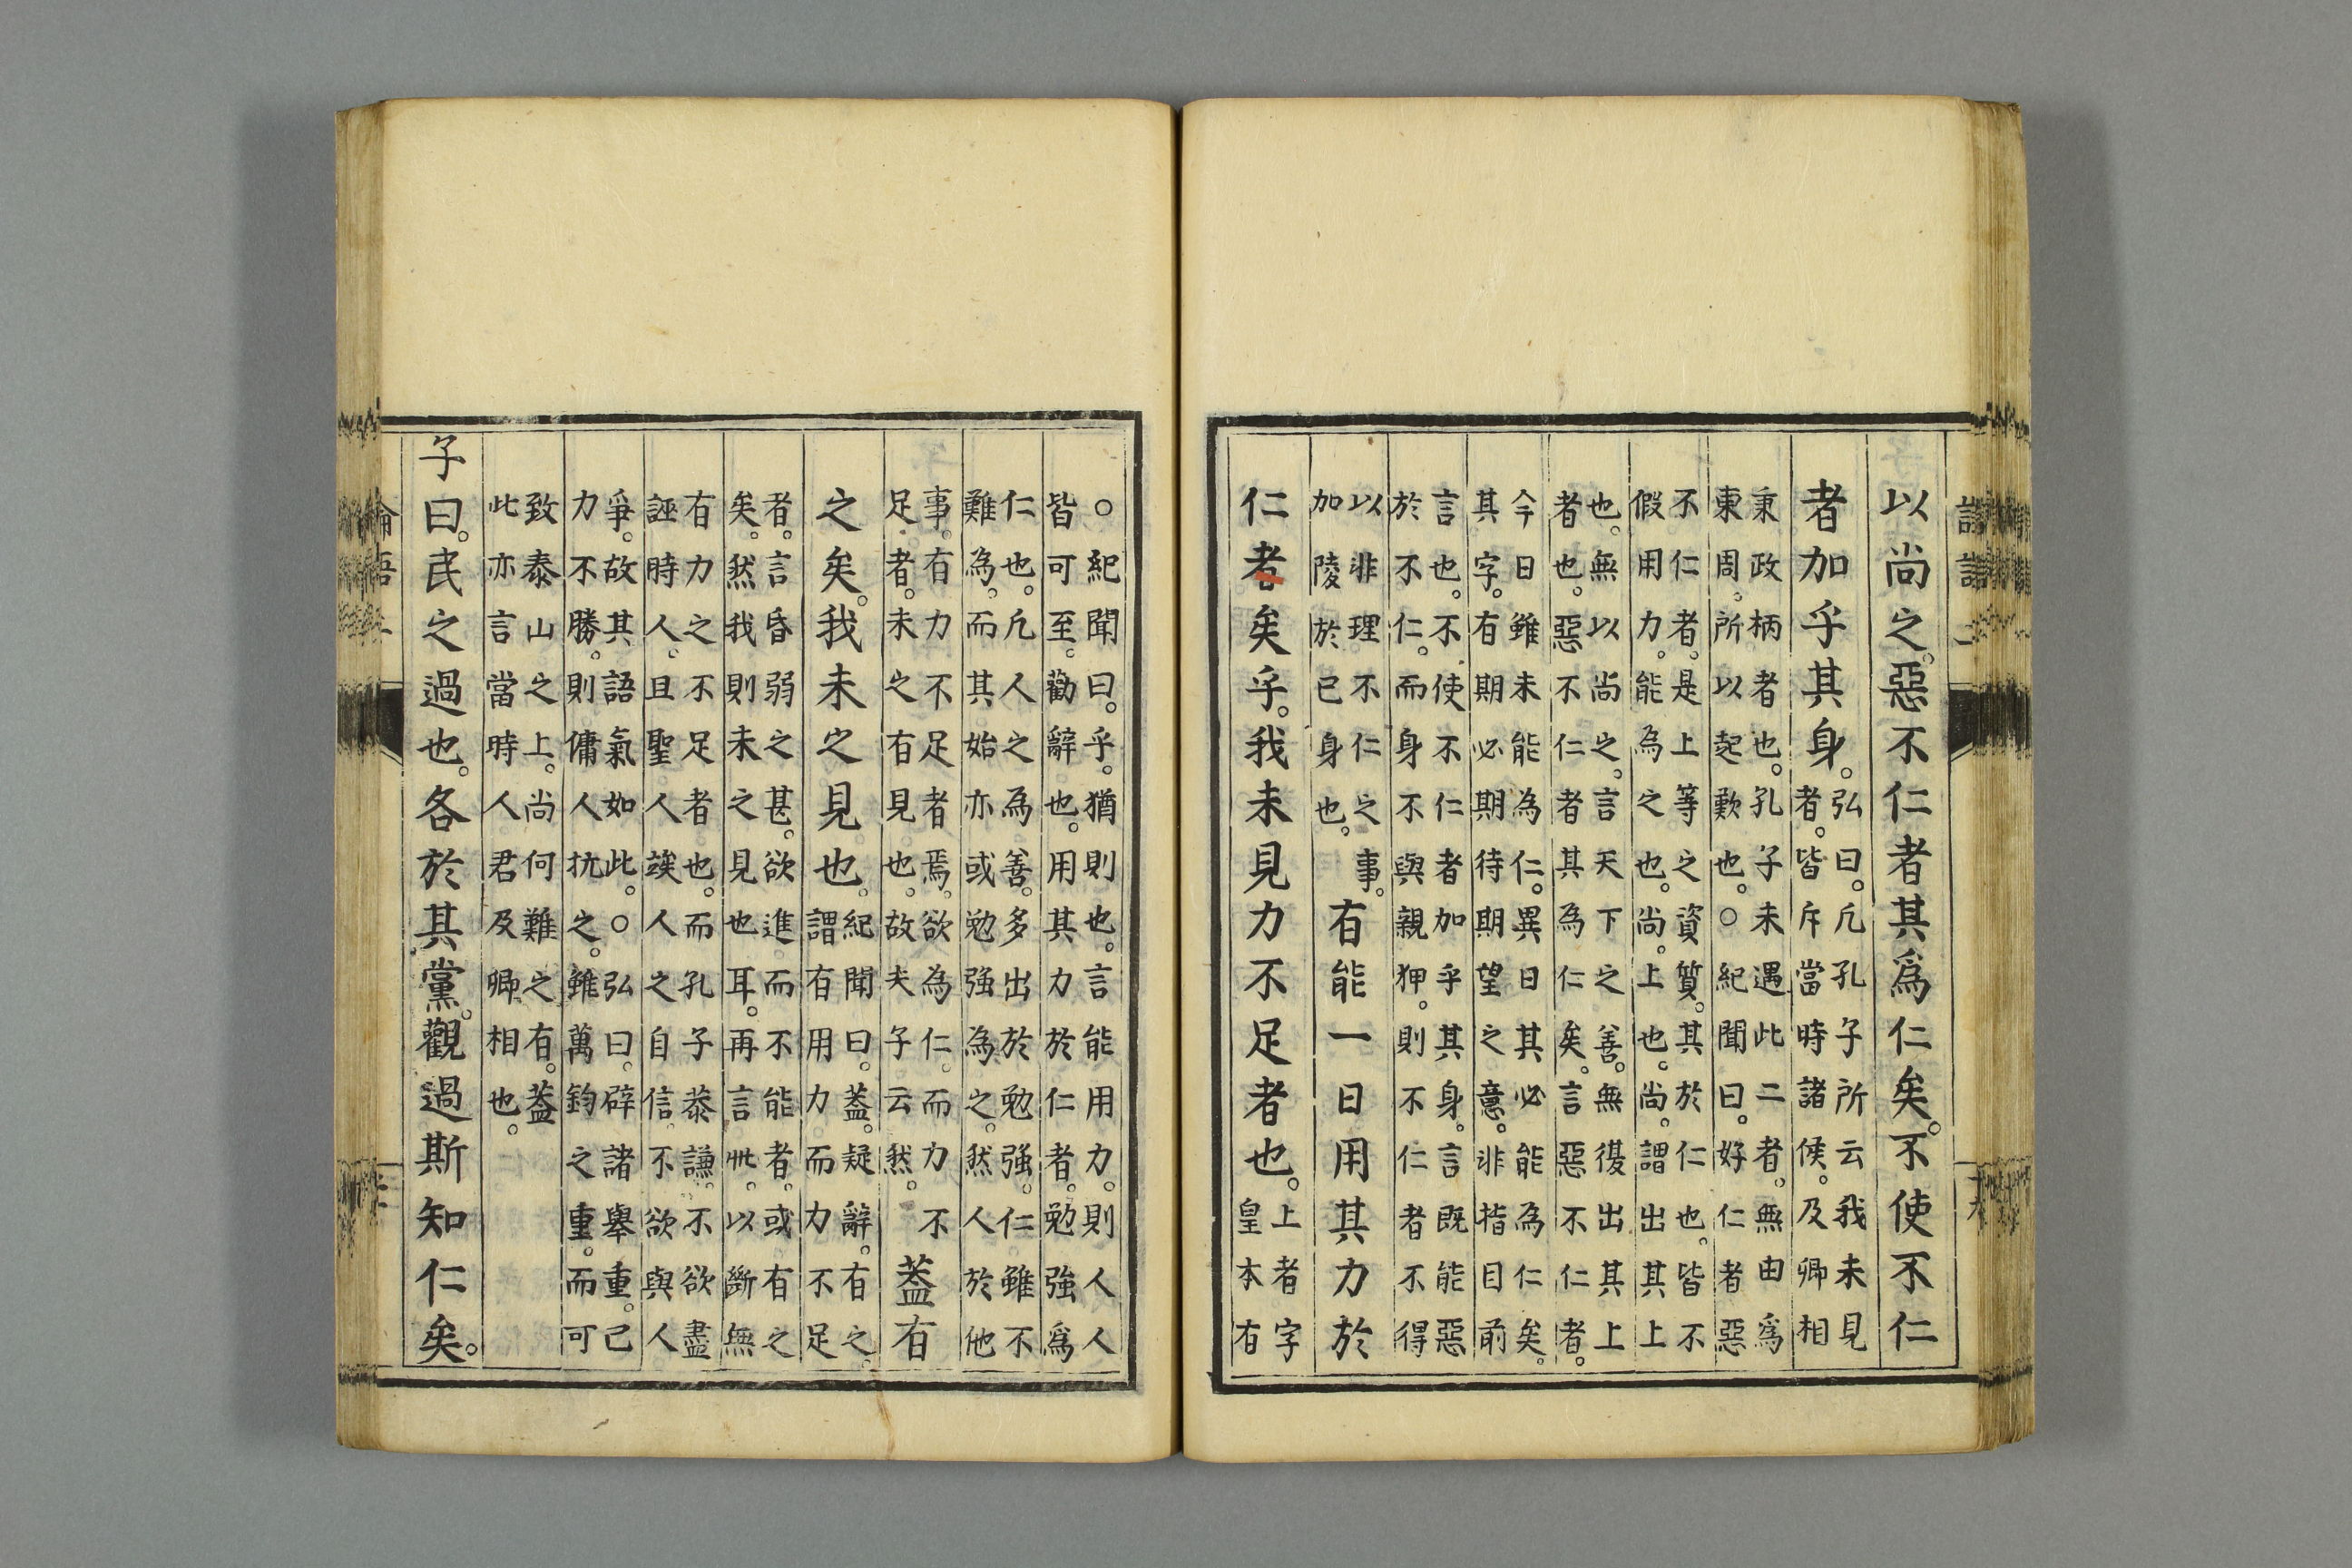 以尚之。惡不仁者其爲仁矣。不使不仁
者加乎其身。
弘曰。凢孔子所云我未見
者。皆斥當時諸侯。及卿相
秉政柄者也。孔子未遇此二者。無由爲
東周。所以起歎也。○紀聞曰。好仁者惡
不仁者。是上等之資質。其於仁也。皆不
假用力。能為之也。尚。上也。尚。謂出其上
也。無以尚之。言天下之善。無復出其上
者也。惡不仁者其為仁矣。言惡不仁者。
今日雖未能為仁。異日其必能為仁矣。
其字。有期必期待期望之意。非指目前
言也。不使不仁者加乎其身。言既能惡
於不仁。而身不與親狎。則不仁者不得
以非理不仁之事。
加陵於已身也。
有能一日用其力於
仁者矣乎。我未見力不足者也。
上者字
皇本有
○紀聞曰。乎。猶則也。言能用力。則人人
皆可至。勸辭也。用其力於仁者。勉強爲
仁也。凢人之為善。多出於勉強。仁雖不
難為。而其始亦或勉强為之。然人於他
事。有力不足者焉。欲為仁。而力不
足者。未之有見也。故夫子云然。
蓋有
之矣。我未之見也。
紀聞曰。蓋。疑辭。有之。
謂有用力。而力不足
者。言昏弱之甚。欲進而不能者。或有之
矣。然我則未之見也耳。再言此。以斷無
有力之不足者也。而孔子恭謙。不欲盡
誣時人。且聖人竢人之自信。不欲與人
爭。故其語氣如此。○弘曰。辟諸舉重。己
力不勝。則傭人抗之。雖萬鈞之重。而可
致泰山之上。尚何難之有。蓋
此亦言當時人君及卿相也。
子曰。民之過也。各於其黨。觀過斯知仁矣。